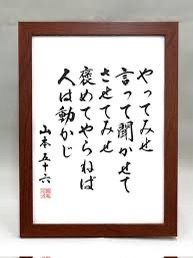 やってみせ
言って聞かせて
させてみせ
褒めてやらねば
人は動かじ
山本五十六